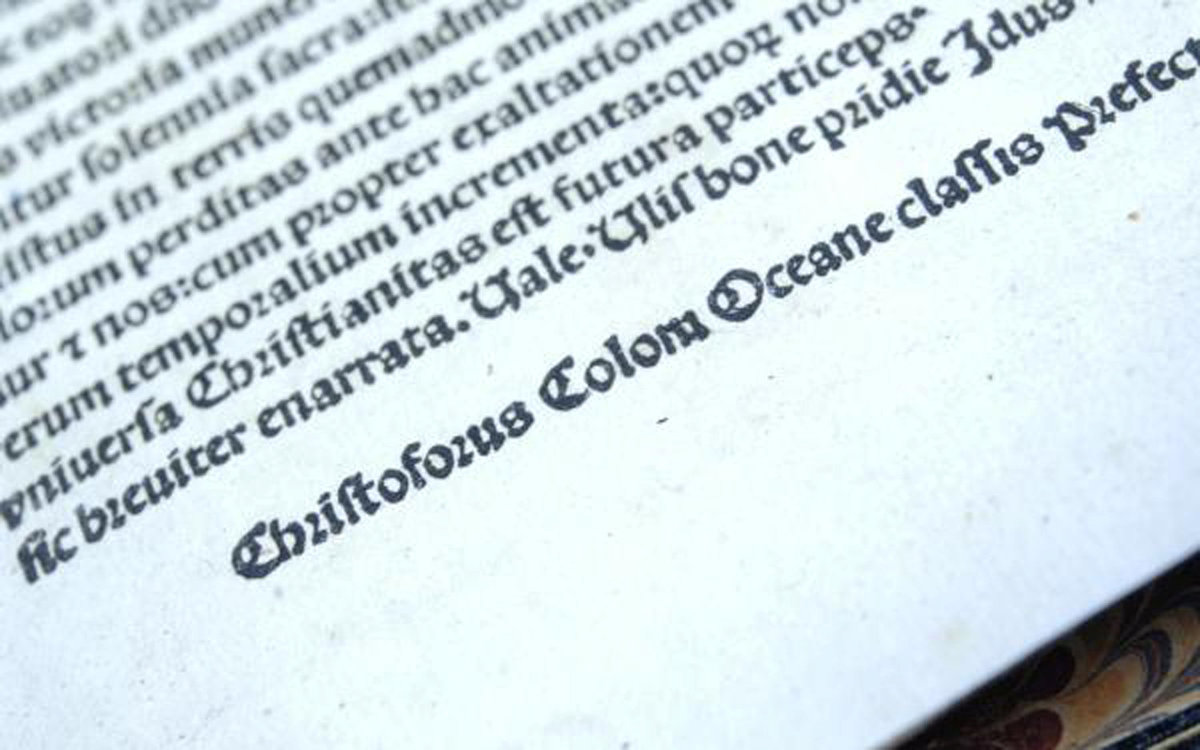 victoria muner
solennia sacra: fe
in terris quemadmo
perditas ante hac anima
ꝛ nos: cum propter exaltationem
erum temporalium incrementa: quoꝝ no
vniuersa Christianitas est futura particeps.
sic breuiter enarrata. Vale. Vlisbone pridie Idus
Christoforus Colom Oceane classis Prefect